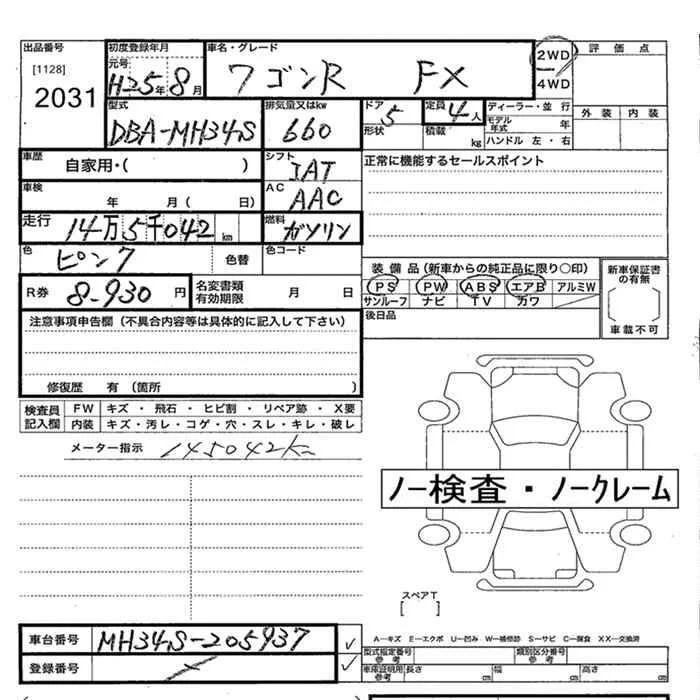 出品番号 初度登録年月 車名・グレード 2WD 評価点
[1128] 元号
2031 H25年8月 ワゴンR FX 4WD
型式 排気量又はkw ドア 定員 ディーラー・並行 外装 内装
DBA-MH34S 660 5 4人 モデル年式 年
形状 積載 kg ハンドル 左・右
車歴 自家用・( ) シフト IAT 正常に機能するセールスポイント
車検 年 月( 日) AC AAC
走行 14万5千042km 燃料 ガソリン
色 ピンク 色替 色コード
装備品(新車からの純正品に限り〇印) 新車保証書の有無
R券 8-930円 名変書類有効期限 月 日 PS PW ABS エアB アルミW
サンルーフ ナビ TV カワ
注意事項申告欄(不具合内容等は具体的に記入して下さい) 後日品 車載不可
修復歴 有(箇所 )
検査員記入欄 FW キズ・飛石・ヒビ割・リペア跡・X要
内装 キズ・汚レ・コゲ・穴・スレ・キレ・破レ
メーター指示 145042km
ノー検査・ノークレーム
スペアT
[ ]
車台番号 MH34S-205937 A−キズ E−エクボ U−凹み W−補修跡 S−サビ C−腐食 XX−交換済
型式指定番号 参考 類別区分番号 参考
登録番号 車庫証明用参考 長さ cm 幅 cm 高さ cm